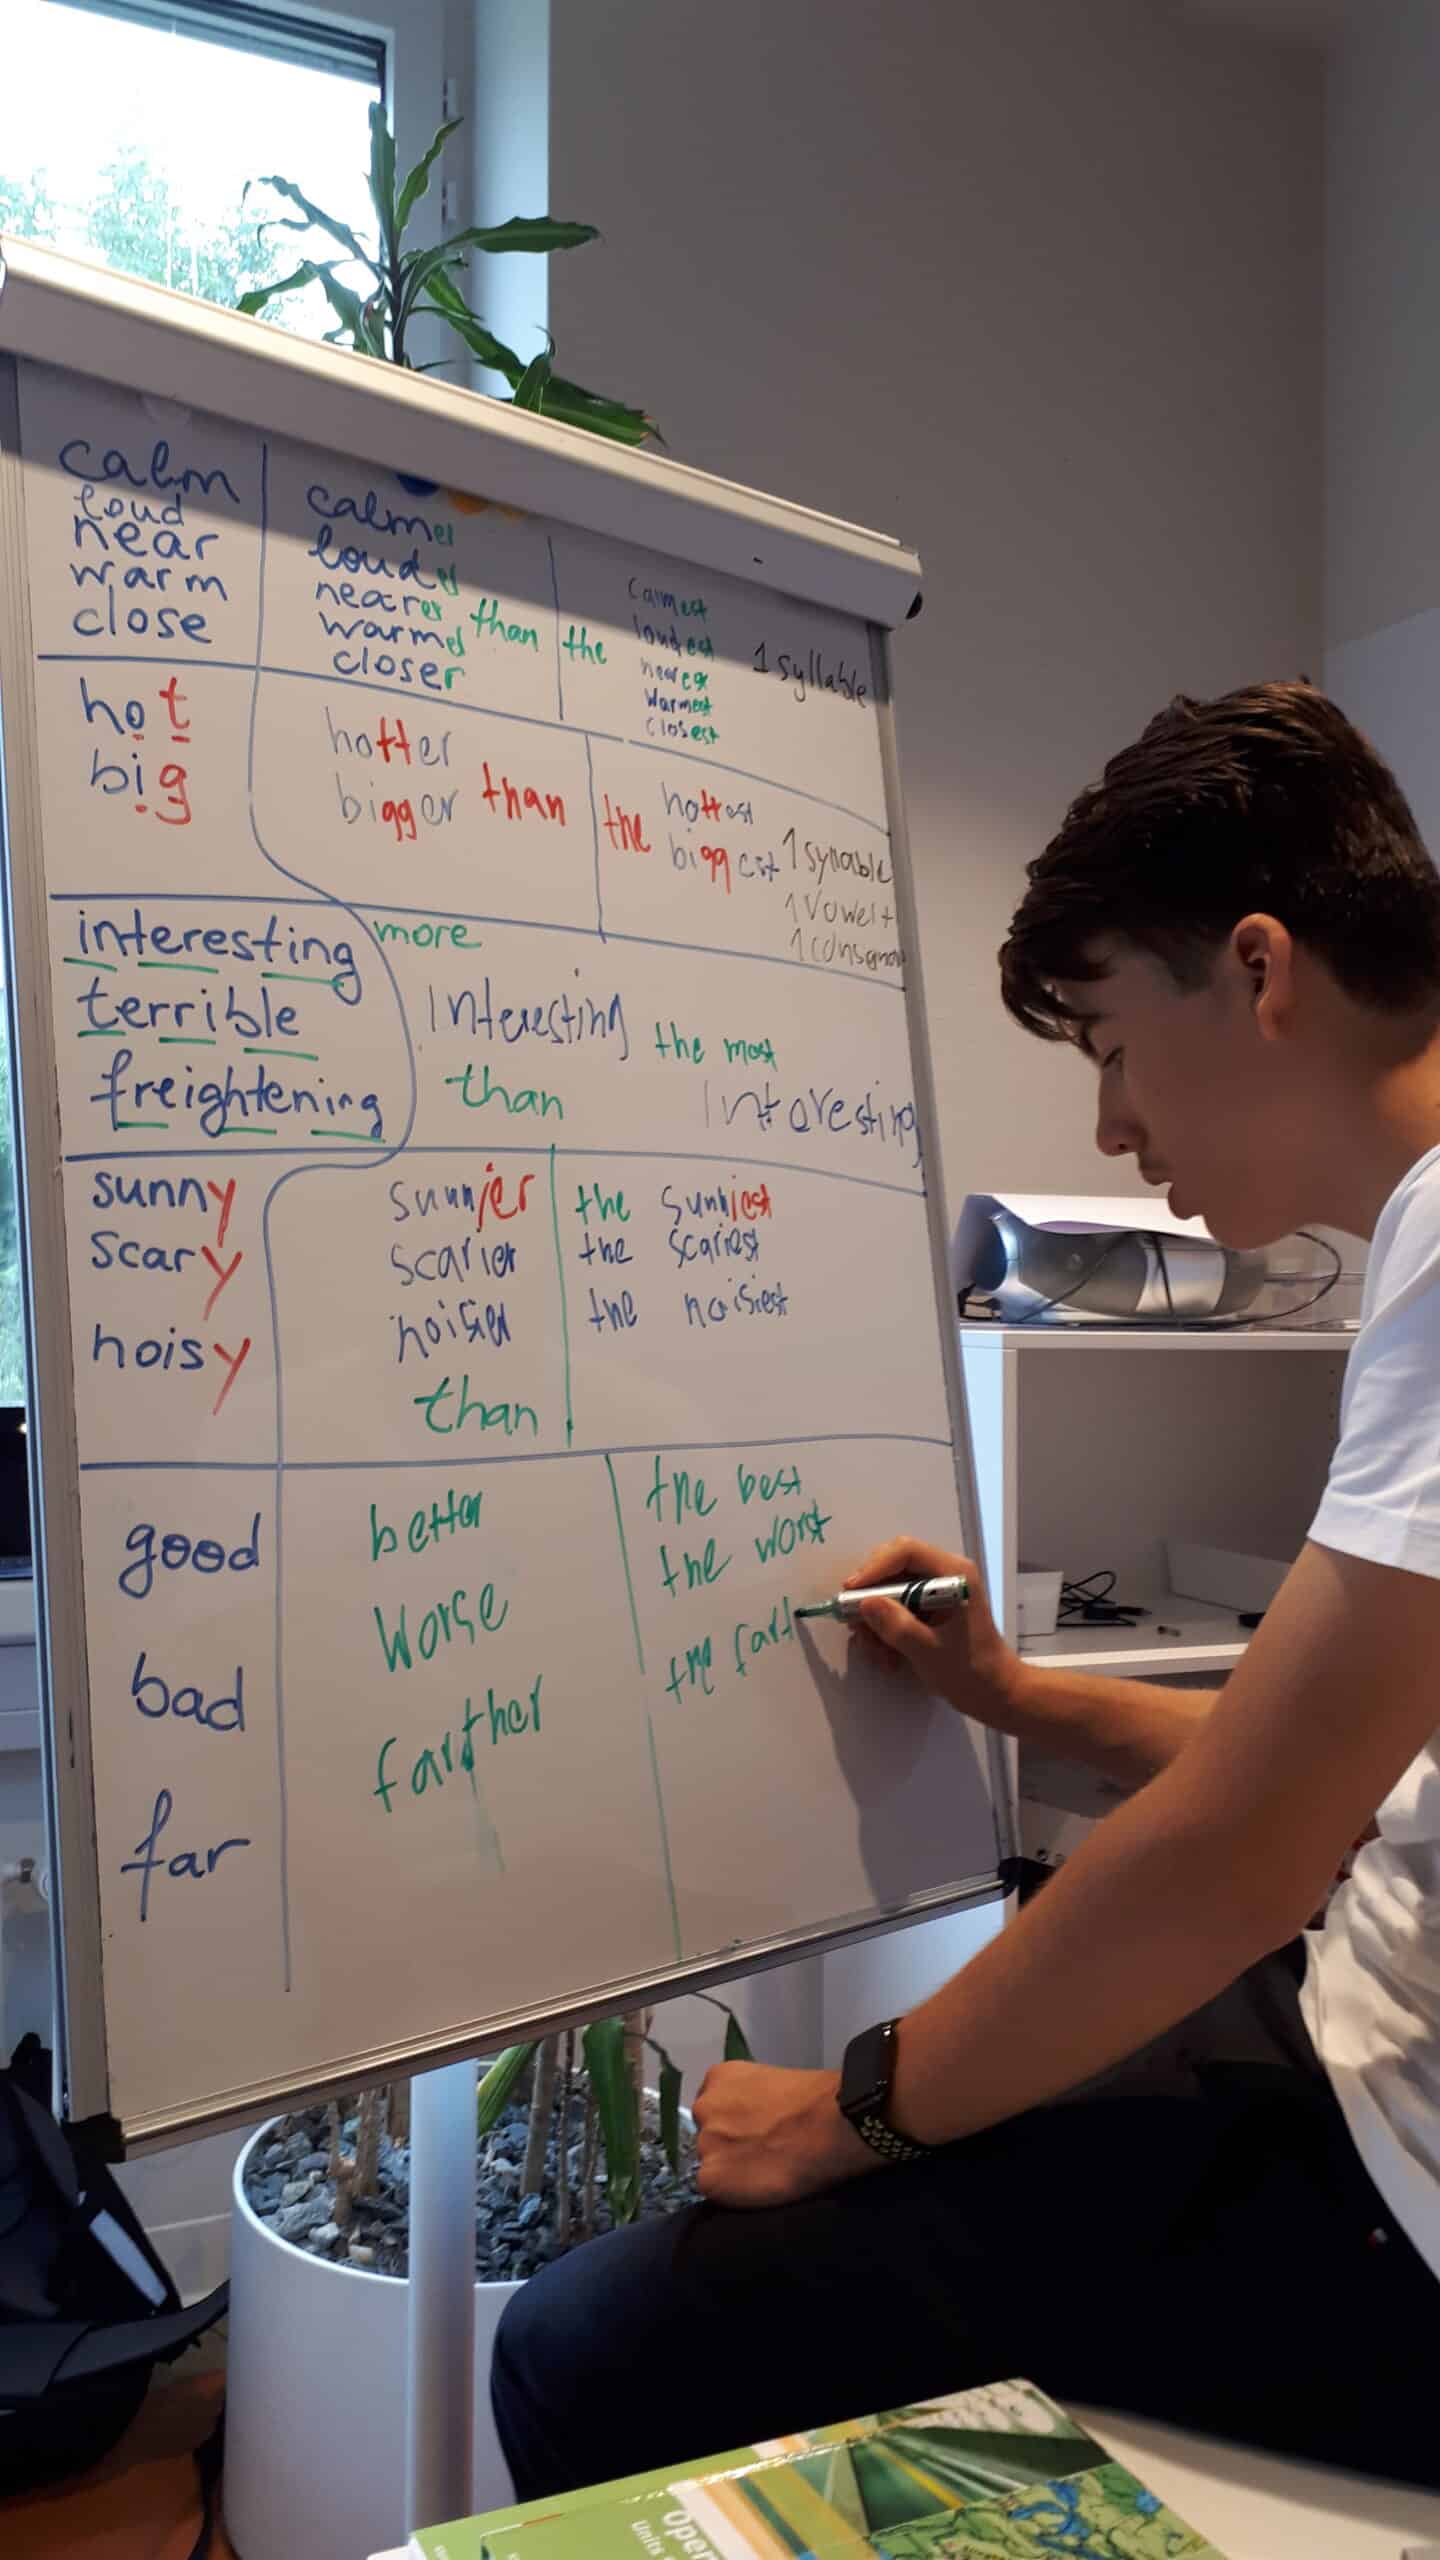 calm
loud
near
warm
close
calmer
louder
nearer than
warmer
closer
the
calmest
loudest
neares
warmest
closest
1 syllable
hot
big
hotter
bigger than
the hottest
biggest
1 syllable
1 Vowel +
interesting
terrible
freightening
more
Interesting
than
the most
Interesting
sunny
scary
noisy
sunnier
scarier
noisier
than
the sunniest
the scariest
the noisiest
good
bad
far
better
Worse
farther
the best
the worst
the fart
Open
Units